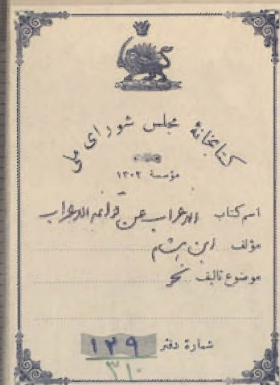 کتابخانهٔ مجلس شورای ملی
مؤسسهٔ ۱۳۰۲
اسم کتاب الاعراب عن قواعد الاعراب
مؤلف ابن هشام
موضوع تالیف نحو
شمارهٔ دفتر ۱۲۹
۳۱۰